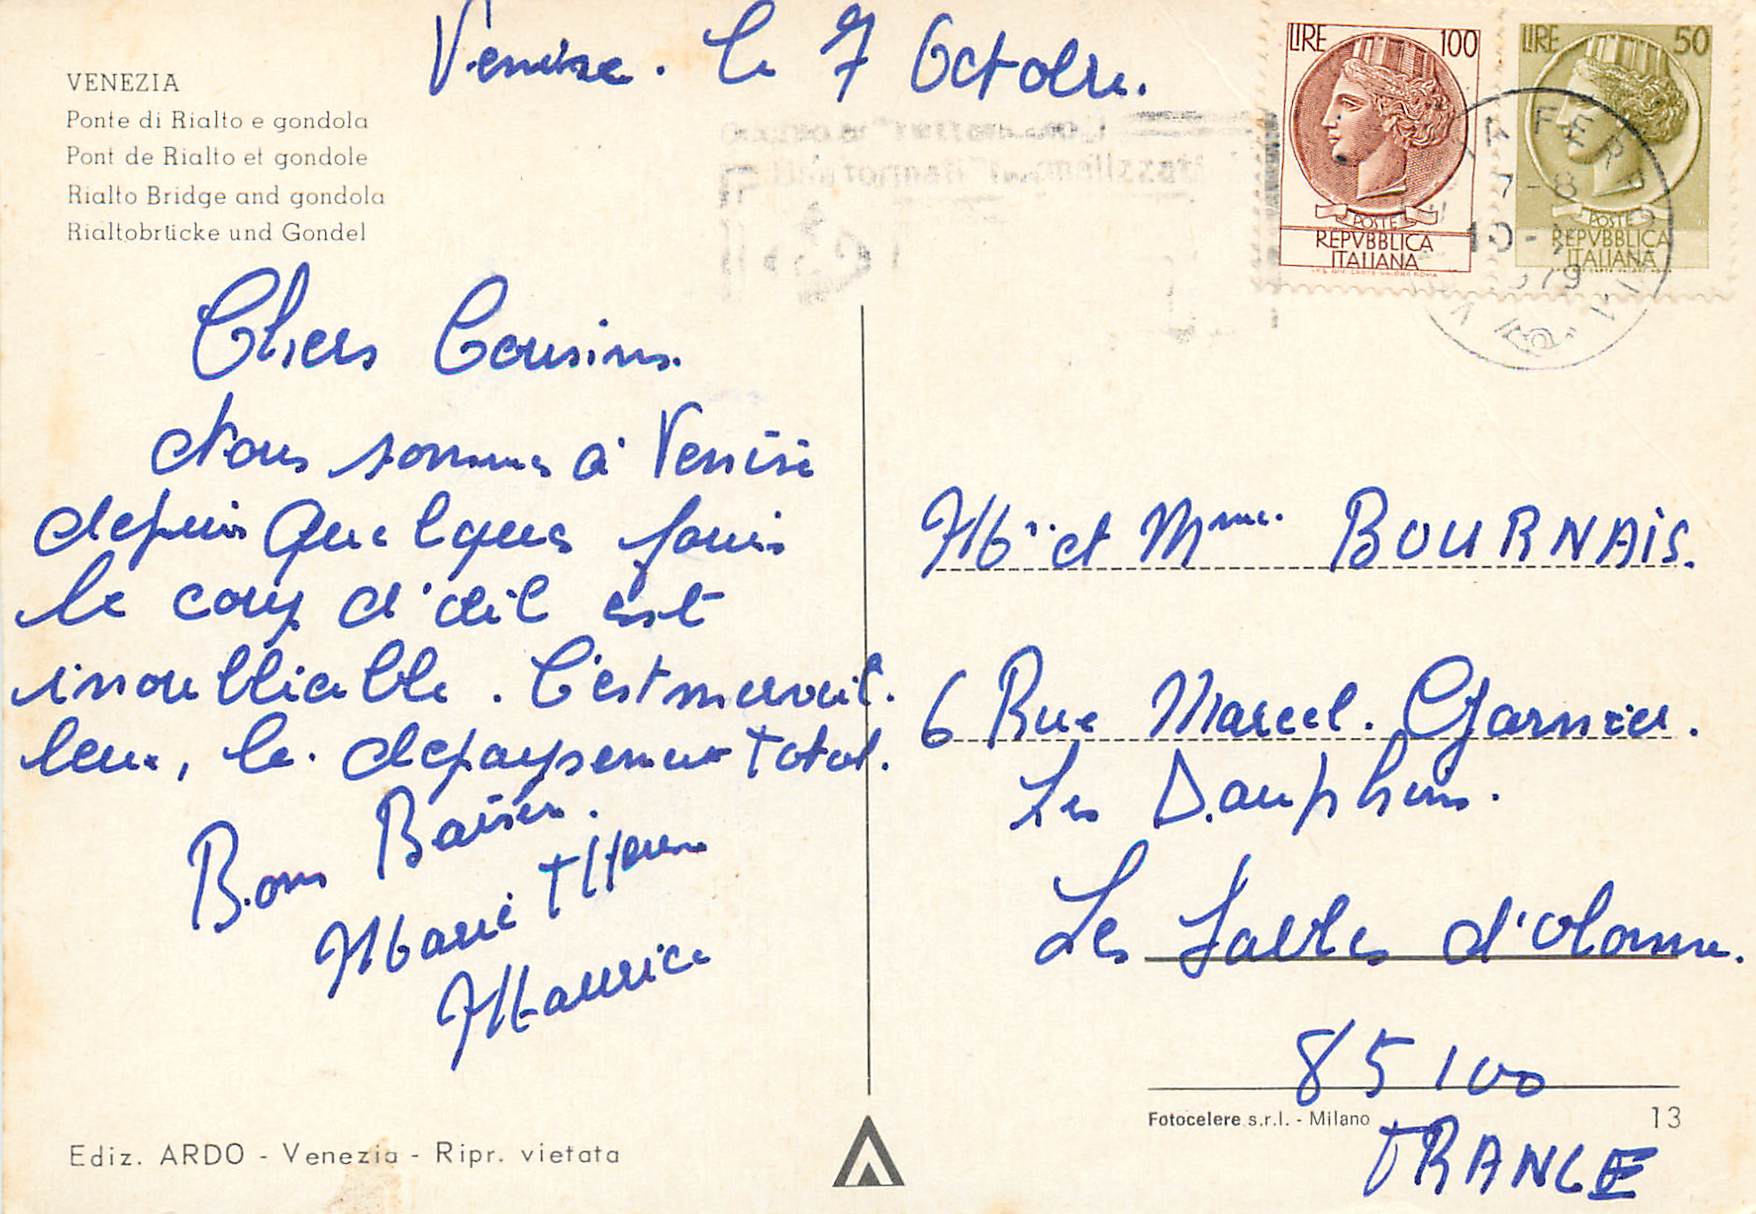 Venise. le 7 Octobre.
VENEZIA
Ponte di Rialto e gondola
Pont de Rialto et gondole
Rialto Bridge and gondola
Rialtobrücke und Gondel
LIRE 100
POSTE
REPVBBLICA
ITALIANA
LIRE 50
POSTE
REPVBBLICA
ITALIANA
Chers Cousins.
Nous sommes à Venise
depuis quelques jours
le coup d'œil est
inoubliable. C'est merveil.
leux, le. depaysement total.
Bons Baisers.
Marie Therese
Maurice
Mr et Mme BOURNAIS.
6 Rue Marcel. Garnier.
Les Dauphins.
Les Sables d'Olonne.
85100
FRANCE
Fotocelere s.r.l. - Milano
13
Ediz. ARDO - Venezia - Ripr. vietata